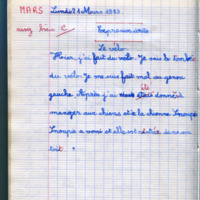 MARS Lundi 21 Mars 1983
assez bien C Expression écrite
Le vélo.
Hier, j'ai fait du vélo. Je suis tombé
du vélo. Je me suis fait mal au genou
gauche. Après j'ai été donné à
manger aux chiens et à la chienne Snoupi
Snoupi a vomi et elle est rentrée dans son
toit.